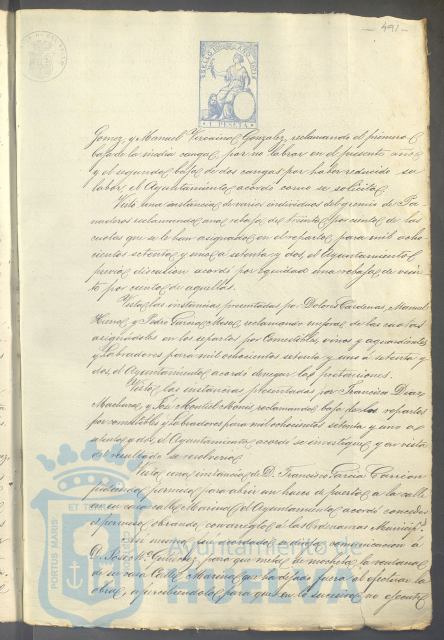 491
SELLO
1 PESETA
Gomez, y Manuel Vizcaino Gonzalez, reclamando el primero
baja de la media canga, por no labrar en el presente año,
y el segundo baja de dos cangas por haber reducido su
labor, el Ayuntamiento acordó como se solicita.
Vista una instancia de varios individuos del gremio de Pa-
naderos reclamando una rebaja del treinta por ciento de las
cuotas que se le han asignado en el reparto para mil ocho-
cientos setenta y uno a setenta y dos, el Ayuntamiento
previa discusion acordó por equidad una rebaja de vein-
te por ciento de aquellas.
Vistas las instancias presentadas por Dolores Cárdenas, Manuel
y Pedro Garcia, reclamando de las cuotas
asignadas en los repartos por Comestibles, vinos y aguardientes
y Labradores para mil ochocientos setenta y uno a setenta y
dos, el Ayuntamiento acordó denegar las pretenciones.
Vistas las instancias presentadas por Francisca Diaz
y José Montiel reclamando baja de los repartos
por comestibles y labradores para mil ochocientos setenta y uno a
setenta y dos, el Ayuntamiento acordó se investigue, y en vista
del resultado se resolverá.
Vista una instancia de D. Francisco Garcia Carrion
pidiendo permiso para abrir un hueco de puerta a la calle
en su casa calle Marina, el Ayuntamiento acordó concederle
el permiso, obrando con arreglo a las Ordenanzas Municip.s
Asi mismo se acordó dirija comunicacion á
D. Gutierrez, para que meta de mocheta la ventana
de su casa Calle Marina que ha dejado fuera al efectuar la
obra, apercibiendole para que en lo sucesivo no ejecute
PORTUS MARIS ET TERRAE
Ayuntamiento de
HUELVA